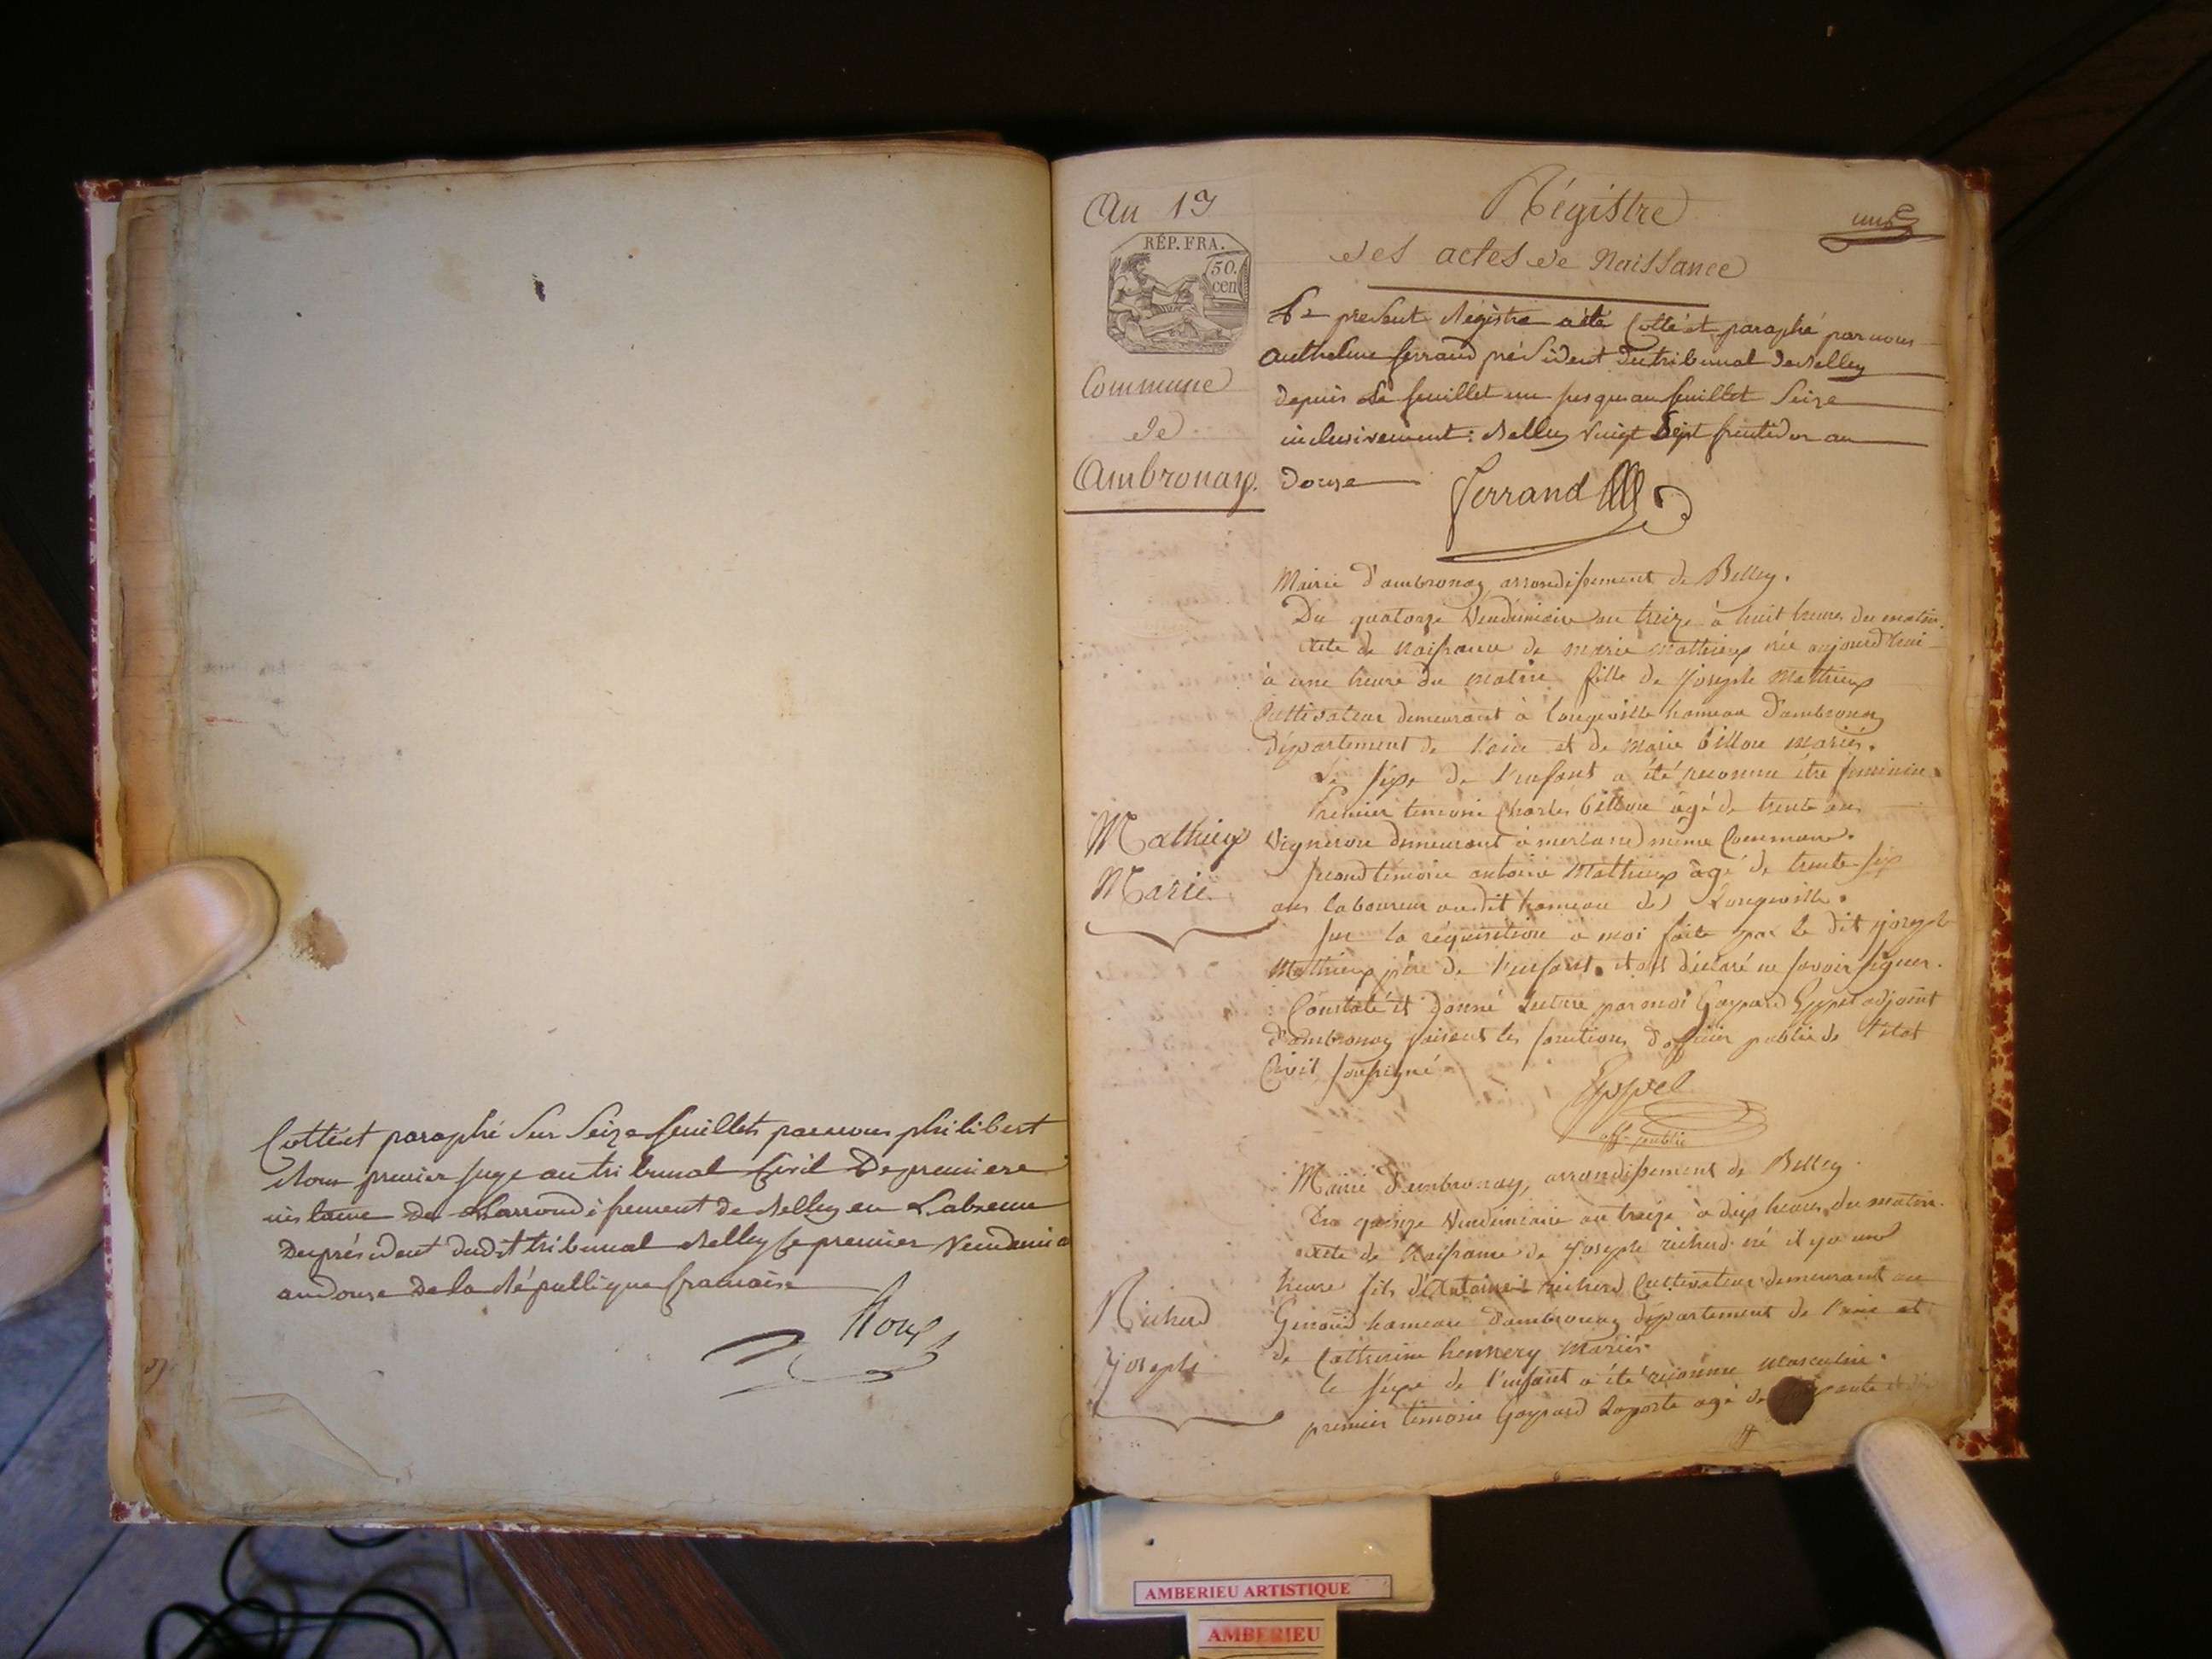 Cotté et paraphé sur seize feuillets par nous philibert
Roux premier juge au tribunal Civil De premiere
instance de L'arrondissement de Belley en L'absence
Du président dudit tribunal Belley le premier vendemia
an Douze De la République francaise
Roux
An 13
RÉP. FRA.
50.
cen
Commune
de
Ambronay.
Régistre
des actes de Naissance
une
Le present Registre a été Cotté et paraphé par nous
Anthelme ferrand président du tribunal de Belley
depuis Le feuillet un jusqu au feuillet Seize
inclusivement : Belley vingt Sept fructidor an
Douze
ferrand
Mairie d'ambronay arrondissement de Belley.
Du quatorze Vendémiaire an treize à huit heures du matin.
Acte de Naissance de marie Mathieux née aujourd'hui
à une heure du matin fille de Joseph Mathieux
Cultivateur demeurant à longeville hameau d'ambronay
département de l'ain et de Marie billon mariés.
Le sexe de l'enfant a été reconnu être féminin.
Premier temoin Charles billon âgé de trente ans
Vigneron demeurant à merland même Commune.
second témoin antoine Mathieux âgé de trente-six
ans laboureur au dit hameau de Longeville.
sur la réquisition à moi faite par le dit joseph
Mathieux père de l'enfant. et ont déclaré ne savoir signer.
Constaté et donné lecture par moi Gaspard Eppel adjoint
d'ambronay faisant les fonctions d'officier public de l'état
Civil soussigné
Eppel
off. public
Mathieux
Marie
Mairie d'ambronay, arrondissement de Belley.
Du quinze Vendémiaire an treize à dix heures du matin.
Acte de Naissance de Joseph richerd né il y a une
heure fils d'Antoine richerd Cultivateur demeurant au
Genoud hameau d'ambronay département de l'ain et
de Catherine hennery Mariés.
le sexe de l'enfant a été reconnu masculin.
premier témoin Gaspard Laporte agé de
Richerd
joseph
AMBERIEU ARTISTIQUE
AMBERIEU